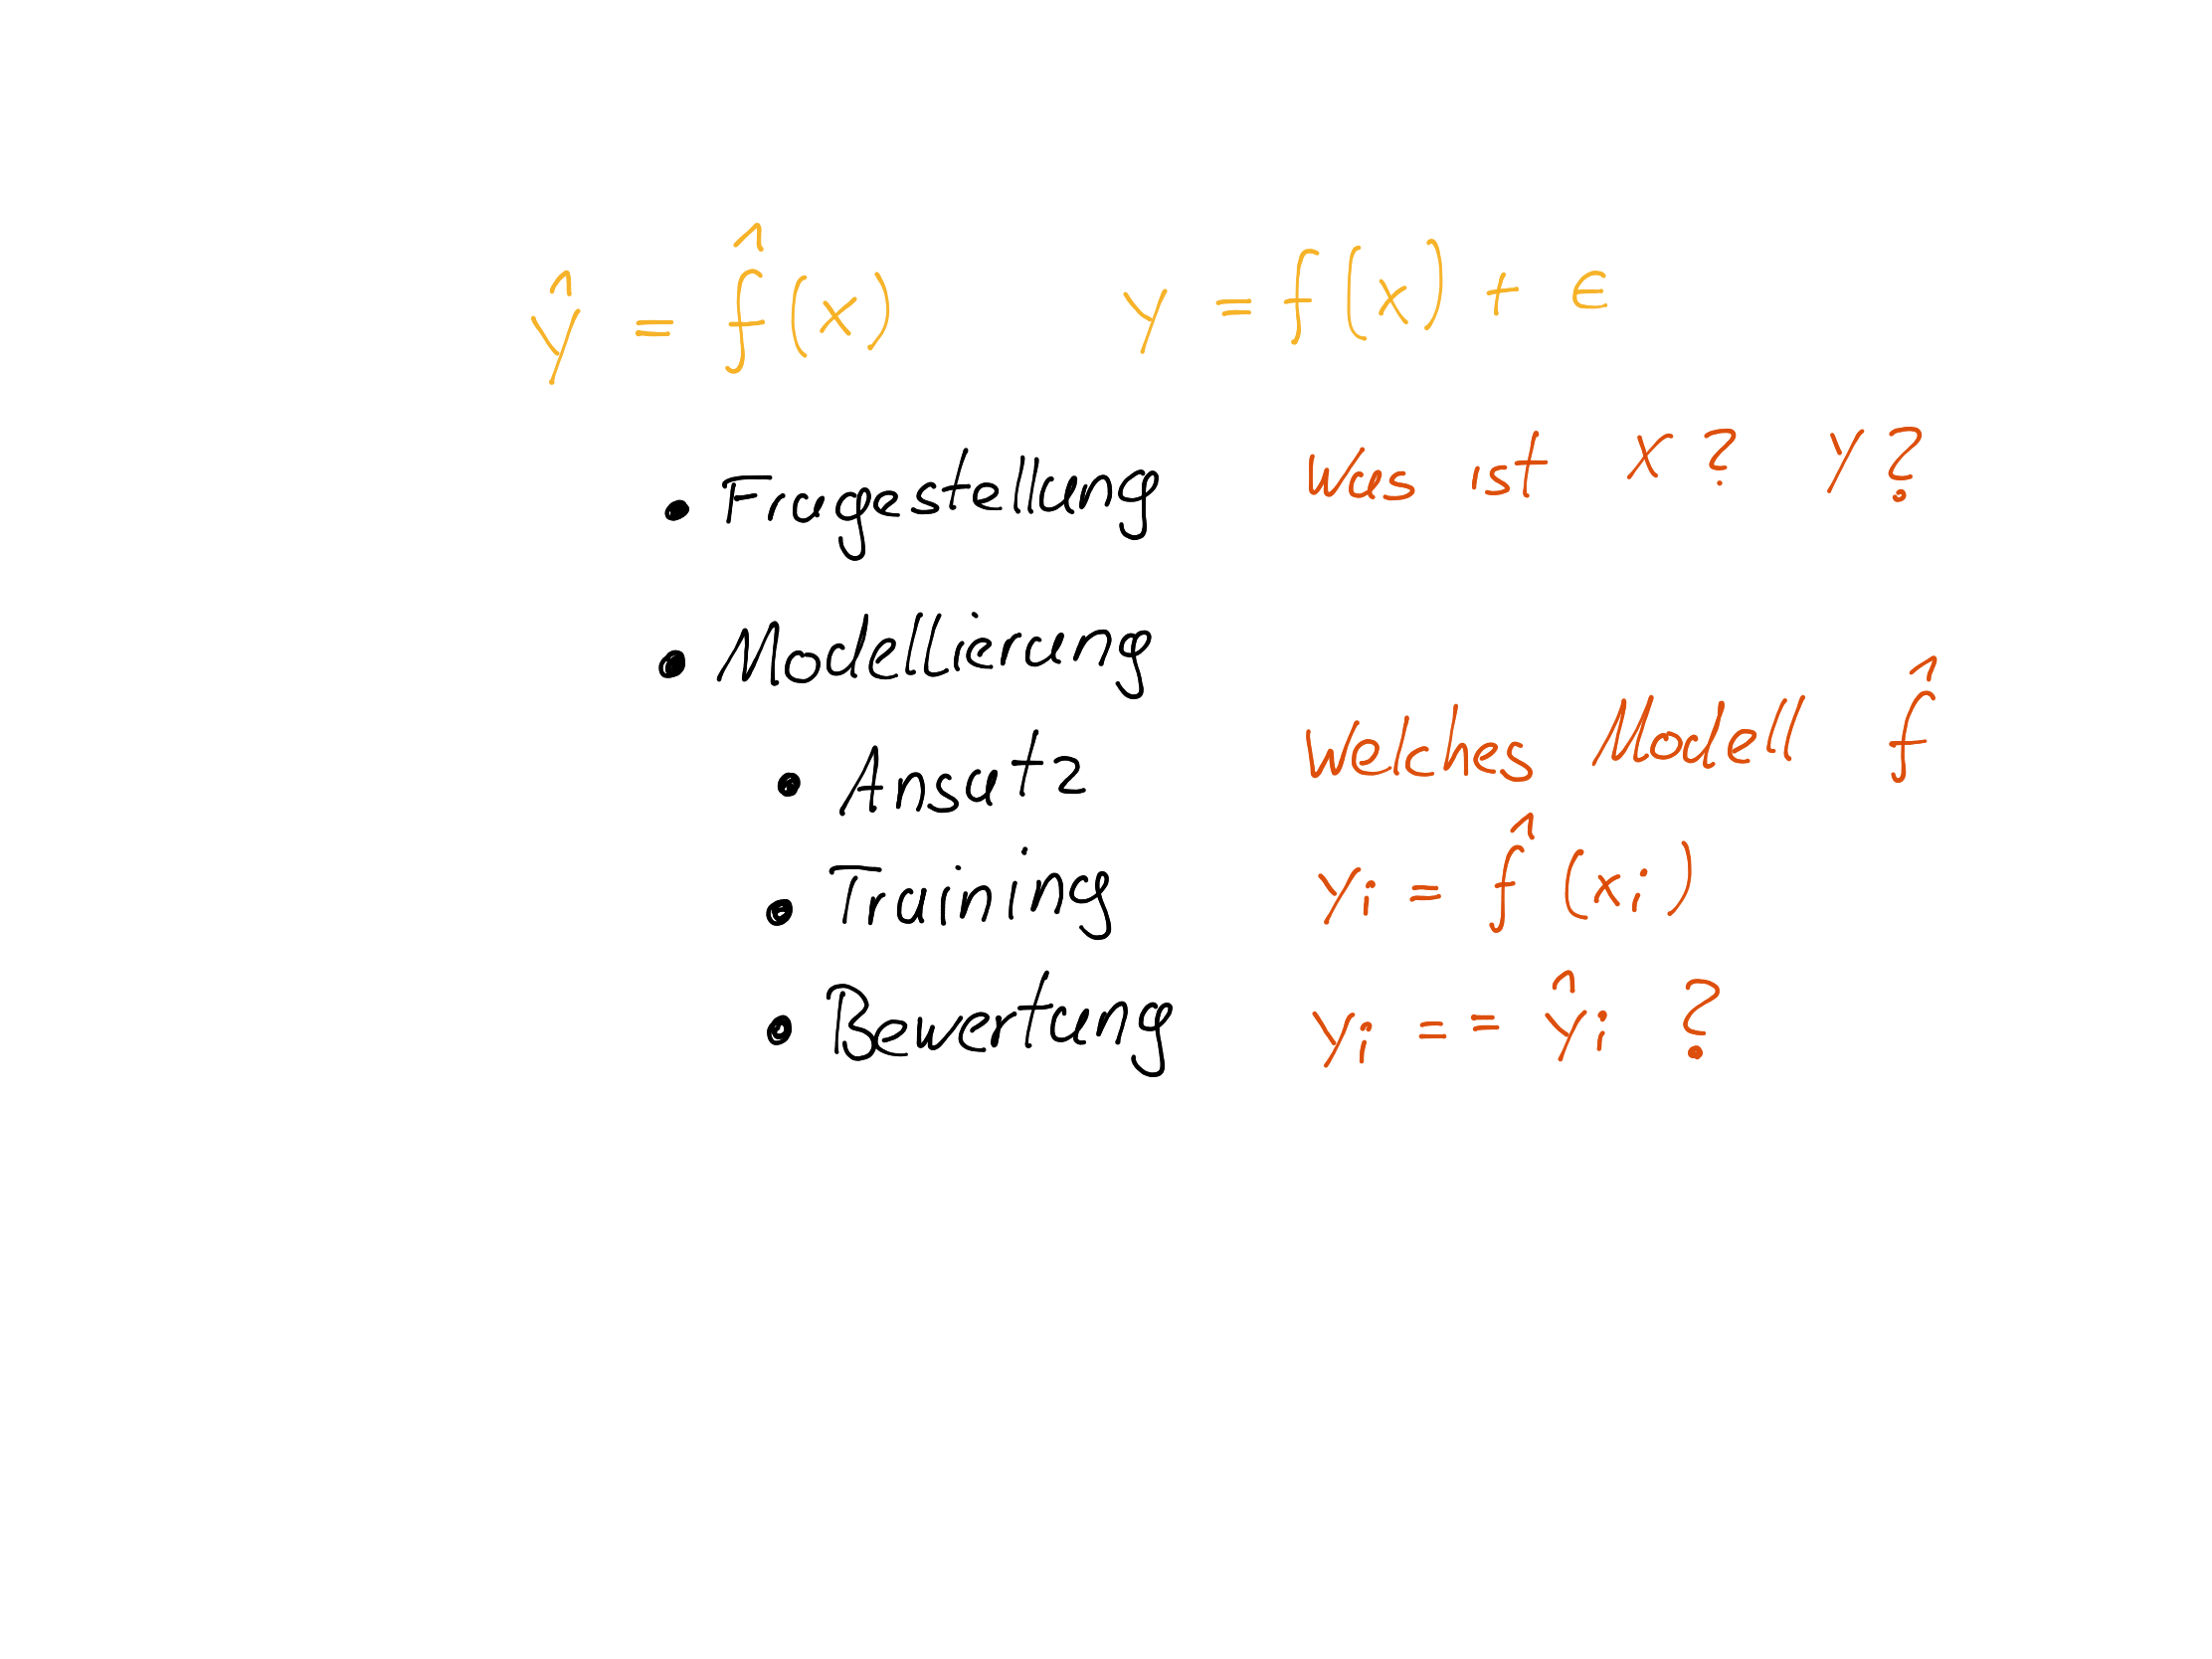 ŷ = f̂(x) y = f(x) + ϵ
• Fragestellung Was ist x? y?
• Modellierung
• Ansatz Welches Modell f̂
• Training yi = f̂(xi)
• Bewertung yi == ŷi ?